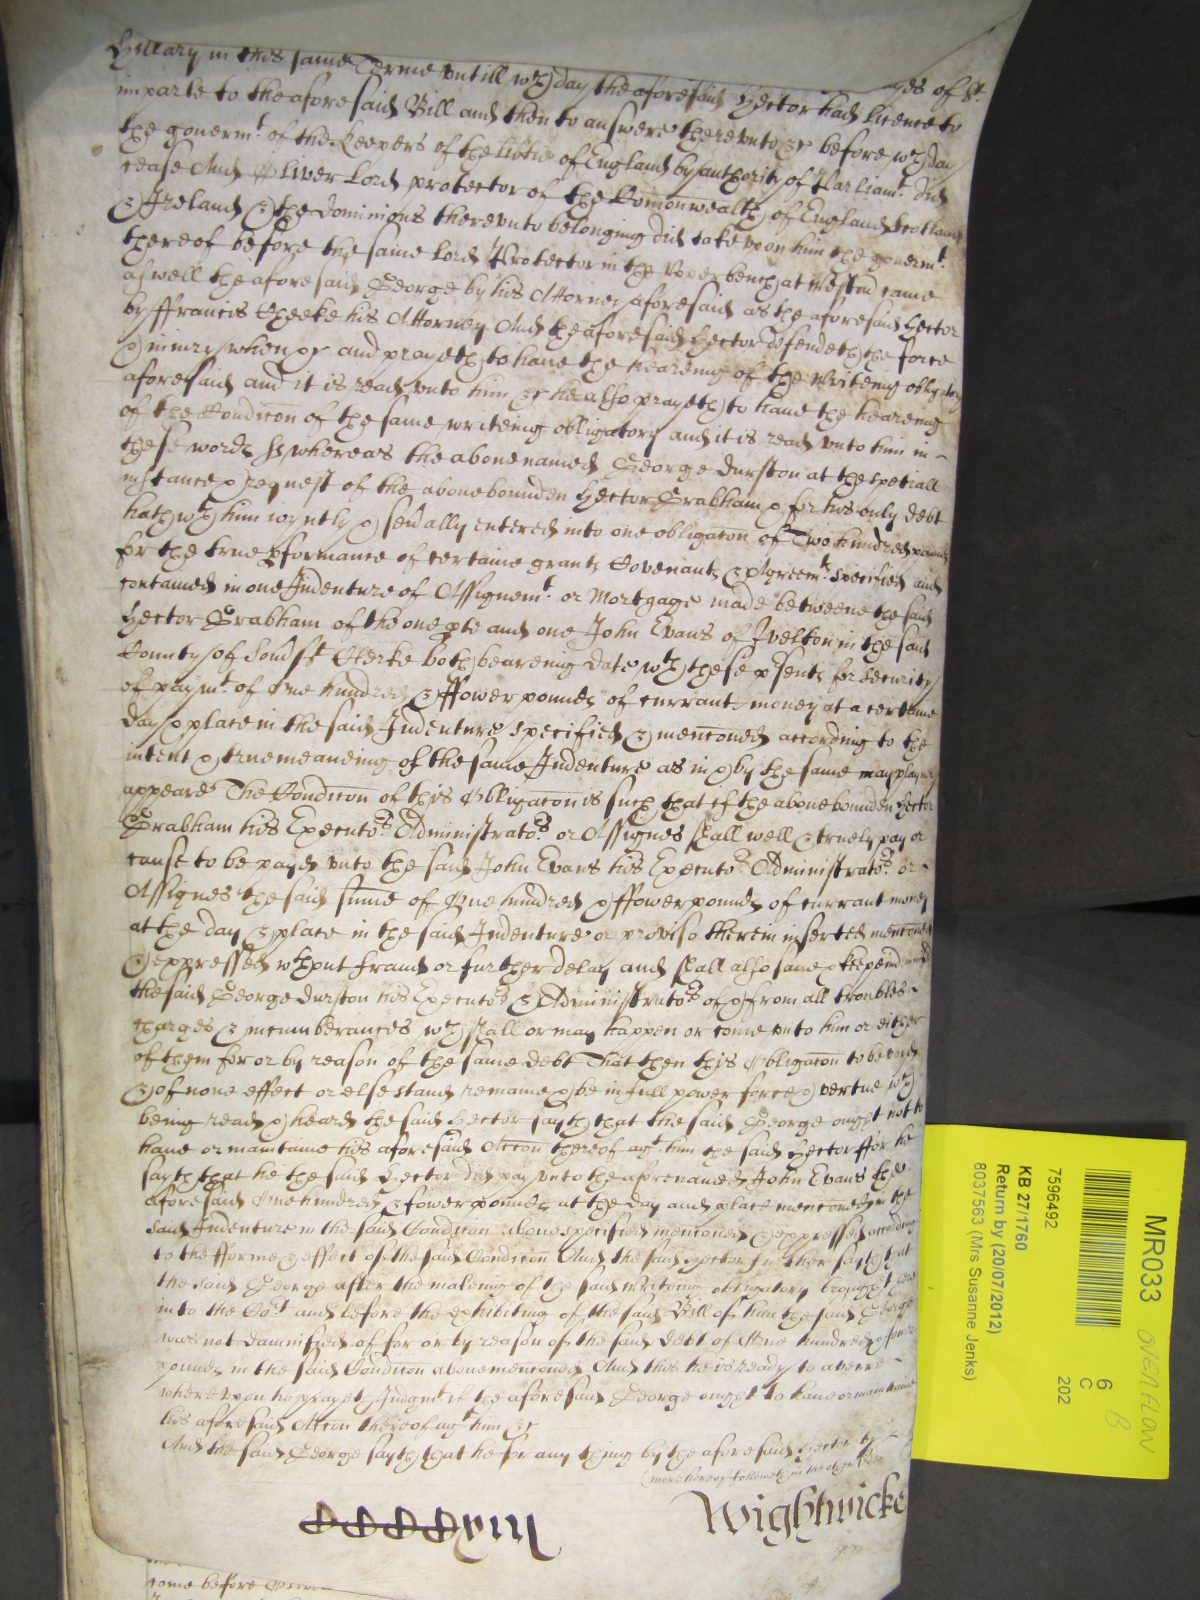 Hillary in this same Terme untill wch day the aforesaid Hector had licence to
yes of St.
imparle to the aforesaid Bill and then to answere thereunto &c before wch day
the governmt. of the Keepers of the libtie of England by authority of Parliamt. did
cease And Oliver Lord Protector of the Comonwealth of England Scotland
& Ireland & the dominions thereunto belonging did take upon him the governmt.
thereof before the same Lord Protector in the upper bench at Westmr came
aswell the aforesaid George by his Attorney aforesaid as the aforesaid Hector
by Francis Cheeke his Attorney And the aforesaid Hector defendeth the force
& iniury when &c and prayeth to have the heareing of the writeing obligatory
aforesaid and it is read unto him &c he also prayeth to have the heareing
of the Condicon of the same writeing obligatory and it is read unto him in
these words ss whereas the abovenamed George Durston at the speciall
instance & request of the abovebounden Hector Grabham & for his only debt
hath wth him ioyntly & sevally entered into one obligacon of Two hundred pounds
for the true pformance of certaine grants Covenants & Agreemts. specified and
contained in one Indenture of Assignemt. or Mortgage made betweene the said
Hector Grabham of the one pte and one John Evans of Ivelton in the said
County of Somst Clerke both beareing date wth these psents for security
of paymt. of One hundred & ffower pounds of currant money at a certaine
day & place in the said Indenture specified & menconed according to the
intent & true meaneing of the same Indenture as in & by the same may playnely
appeare The Condicon of this Obligacon is such that if the abovebounden Hector
Grabham his Executors. Administrators. or Assignes shall well & truely pay or
cause to be payd unto the said John Evans his Executors. Administrators. or
Assignes the said sume of One hundred & ffower pounds of currant money
at the day & place in the said Indenture or proviso therein inserted menconed
& expressed wthout fraud or further delay and shall also save & keepe
the said George Durston his Executors & Administrators of & from all troubles
charges & incumberances wch shall or may happen or come unto him or either
of them for or by reason of the same debt That then this Obligacon to be void
& of none effect or else stand remaine & be in full power force & vertue wch
being read & heard the said Hector sayth that the said George ought not to
have or maintaine his aforesaid Accon thereof agt. him the said Hector ffor he
sayth that he the said Hector did pay unto the aforenamed John Evans the
aforesaid One hundred & fower pounds at the day and place menconed in the
said Indenture in the said Condicon above specified menconed & expressed according
to the fforme & effect of the said Condicon And the said Hector further sayth that
the said George after the makeing of the said writeing obligatory brought here
into the Cort and before the exhibiting of the said Bill of him the said George
was not damnified of for or by reason of the said debt of One hundred & fower
pounds in the said Condicon abovemenconed And this he is ready to averre
whereupon he prayeth Judgmt if the aforesaid George ought to have or maintaine
his aforesaid Accon thereof agt him &c
And the said George sayth that he for any thing by the aforesaid Hector
(more hereof followeth in the other side
Wightwicke
come before
MR033
OVERFLOW
B
6
C
202
7596492
KB 27/1760
Return by (20/07/2012)
8037563 (Mrs Susanne Jenks)